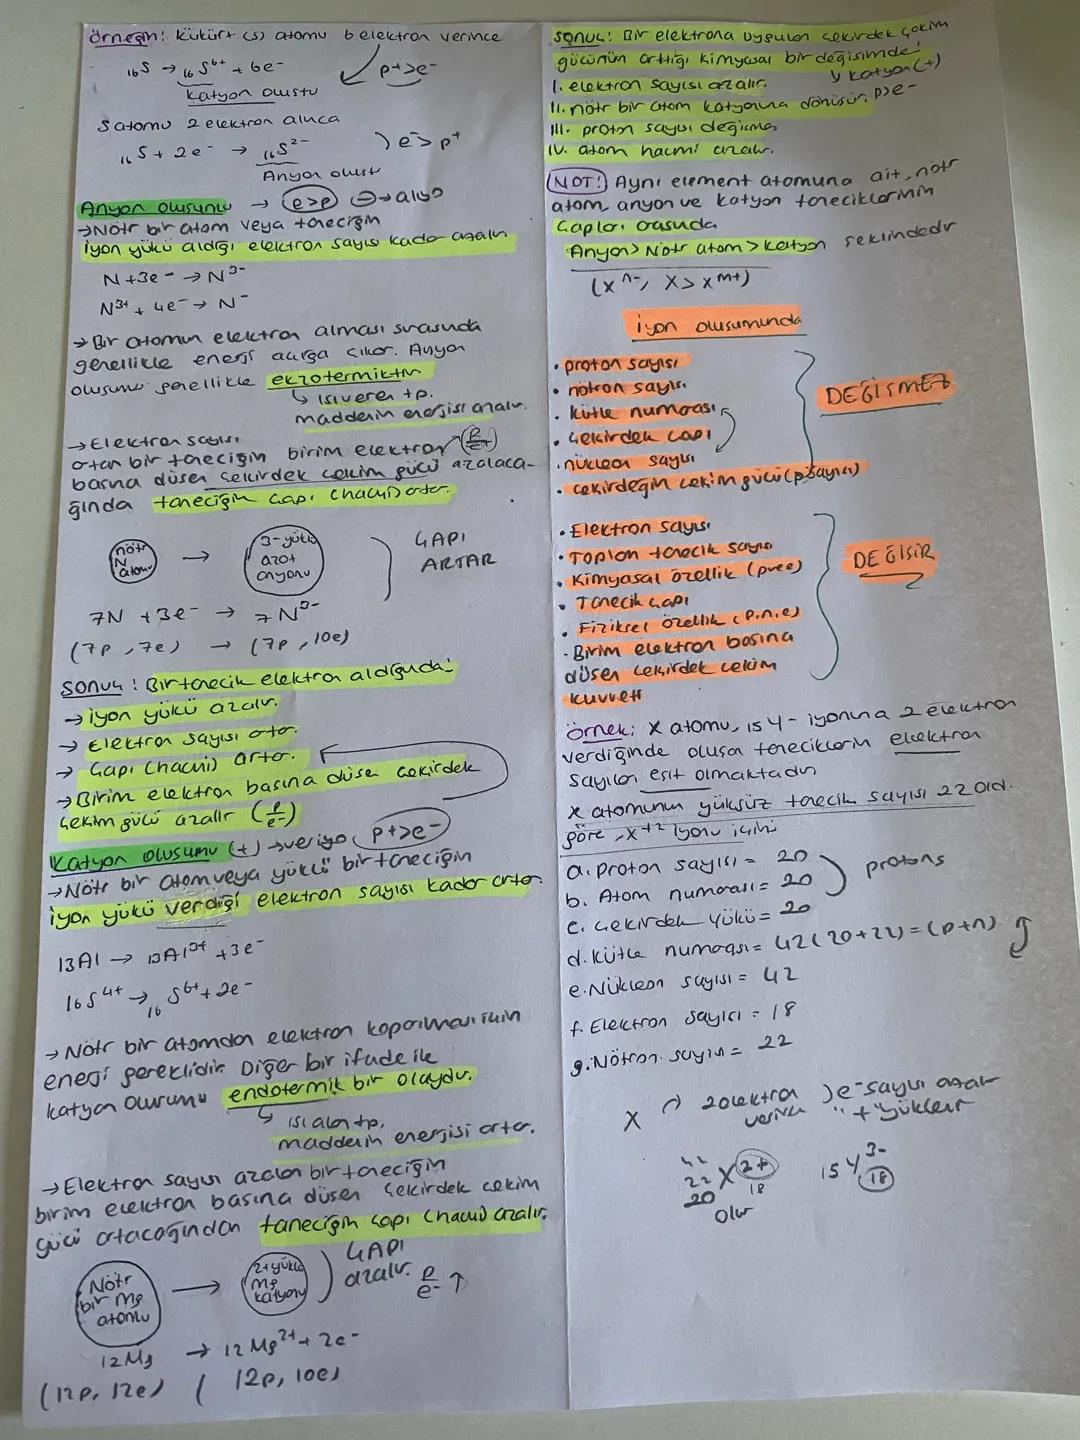 Örneğin: Kükürt (S) atomu 6 elektron verince
₁₆S → ₁₆S⁶⁺ + 6e⁻ p+>e-
Katyon oluştu
S atomu 2 elektron alınca
₁₆S + 2e⁻ → ₁₆S²⁻ ) e⁻> p⁺
Anyon oluşt
Anyon oluşumu → (e>p) ⊖→alıyo
→Nötr bir atom veya taneciğin
iyon yükü aldığı elektron sayısı kadar azalır
N+3e⁻ → N³⁻
N³⁺ + 4e⁻ → N⁻
→ Bir atomun elektron alması sırasında
genellikle enerji açığa çıkar. Anyon
oluşumu genellikle ekzotermiktir
↳ ısı veren tp.
maddenin enerjisi azalır.
→Elektron sayısı
artan bir taneciğin birim elektron (p/e-)
başına düşen çekirdek çekim gücü azalaca-
ğında taneciğin çapı (hacmi) artar.
nötr N atomu → 3-yüklü azot anyonu
ÇAPI
ARTAR
7N +3e⁻ → ₇N³⁻
(7p, 7e) → (7p, 10e)
SONUÇ: Bir tanecik elektron aldığında:
→ iyon yükü azalır.
→ Elektron sayısı artar.
→ Çapı (hacmi) artar.
→Birim elektron başına düşen çekirdek
çekim gücü azalır (p/e-)
Katyon oluşumu (+) →veriyo (p+>e-)
→Nötr bir atom veya yüklü bir taneciğin
iyon yükü verdiği elektron sayısı kadar artar.
13Al → 13Al³⁺ +3e⁻
16S⁴⁺ → ₁₆S⁶⁺ + 2e⁻
→ Nötr bir atomdan elektron koparılması için
enerji gereklidir. Diğer bir ifade ile
katyon oluşumu endotermik bir olaydır.
↳ ısı alan tp.
maddenin enerjisi artar.
→Elektron sayısı azalan bir taneciğin
birim elektron başına düşen çekirdek çekim
gücü artacağından taneciğin çapı (hacmi) azalır.
Nötr bir Mg atomu → 2+yüklü Mg katyonu
ÇAPI
azalır. p/e- ↑
12Mg → 12Mg²⁺ + 2e⁻
(12p, 12e) ( 12p, 10e)
SONUÇ: Bir elektrona uygulan çekirdek çekim
gücünün arttığı kimyasal bir değişimde!
I. elektron sayısı azalır. ↳ katyon (+)
II. nötr bir atom katyonuna dönüşür. p>e-
III. proton sayısı değişmez
IV. atom hacmi azalır.
NOT! Aynı element atomuna ait, nötr
atom, anyon ve katyon taneciklerinin
çapları arasında
Anyon> Nötr atom > katyon şeklindedir
(Xⁿ⁻, X > Xᵐ⁺)
iyon oluşumunda
• proton sayısı
• nötron sayısı
• kütle numarası
• çekirdek çapı
• nükleon sayısı
• çekirdeğin çekim gücü (p sayısı)
DEĞİŞMEZ
• Elektron sayısı
• Toplam tanecik sayısı
• Kimyasal özellik (p ve e)
• Tanecik çapı
• Fiziksel özellik (p.n.e)
• Birim elektron başına
düşen çekirdek çekim
kuvveti
DEĞİŞİR
Örnek: X atomu, 15Y³⁻ iyonuna 2 elektron
verdiğinde oluşan taneciklerin elektron
sayıları eşit olmaktadır
X atomunun yüksüz tanecik sayısı 22 old.
göre, X⁺² iyonu için;
a. Proton sayısı = 20
b. Atom numarası = 20
c. Çekirdek yükü = 20
protons
d. Kütle numarası = 42 (20+22) = (p+n)
e. Nükleon sayısı = 42
f. Elektron sayısı = 18
g. Nötron sayısı = 22
X 2 elektron verince ) e⁻ sayısı azalır
"+" yüklenir
42
22 X 2+
20 18
Olur
15 Y 3-
18